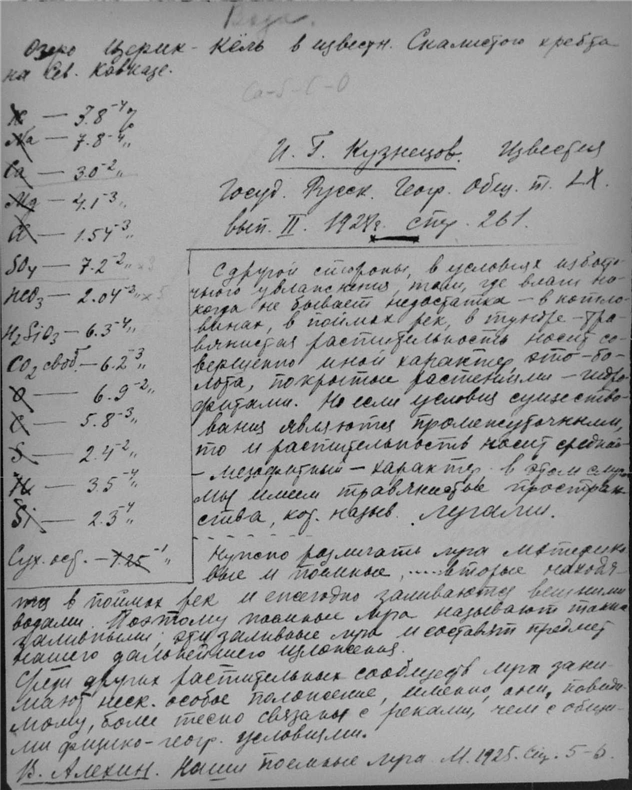 Вода.
Озеро Церик-Кёль в известн. Скалистого хребта
на Сев. Кавказе.
Ca-S-C-O
K — 3.8⁻⁴ %
Na — 7.8⁻⁴ "
Ca — 3.0⁻² "
Mg — 4.1⁻³ "
Cl — 1.54⁻³ "
SO₄ — 7.2⁻² "
HCO₃ — 2.04⁻³ "
H₂SiO₃ — 6.3⁻⁴ "
CO₂ своб. — 6.2⁻³ "
O — 6.9⁻² "
C — 5.8⁻³ "
S — 2.4⁻² "
H — 3.5⁻⁴ "
Si — 2.3⁻⁴ "
Сух. ост. — 1.25⁻¹ "
И. Г. Кузнецов. Известия
Госуд. Русск. Геогр. Общ. т. LX.
вып. II. 1928г. стр. 261.
С другой стороны, в условиях избыто-
чного увлажнения, там, где влаги ни-
когда не бывает недостатка — в котло-
винах, в поймах рек, в тундре — тра-
вянистая растительность носит со-
вершенно иной характер, это — бо-
лота, покрытые растениями — гидро-
фитами. Но если условия существо-
вания являются промежуточными,
то и растительность носит средний
— мезофитный — характер. в этом случ.
мы имеем травянистые простран-
ства, кот. назыв. лугами.
Нужно различать луга материко-
вые и поемные, .... вторые находя-
тся в поймах рек и ежегодно заливаются вешними
водами. Поэтому поемные луга называют также
заливными; эти заливные луга и составят предмет
нашего дальнейшего изложения.
Среди других растительных сообществ луга зани-
мают неск. особое положение, именно они, повиди-
мому, более тесно связаны с реками, чем с общи-
ми физико-геогр. условиями.
В. Алехин. Наши поемные луга. М. 1925. Стр. 5-6.